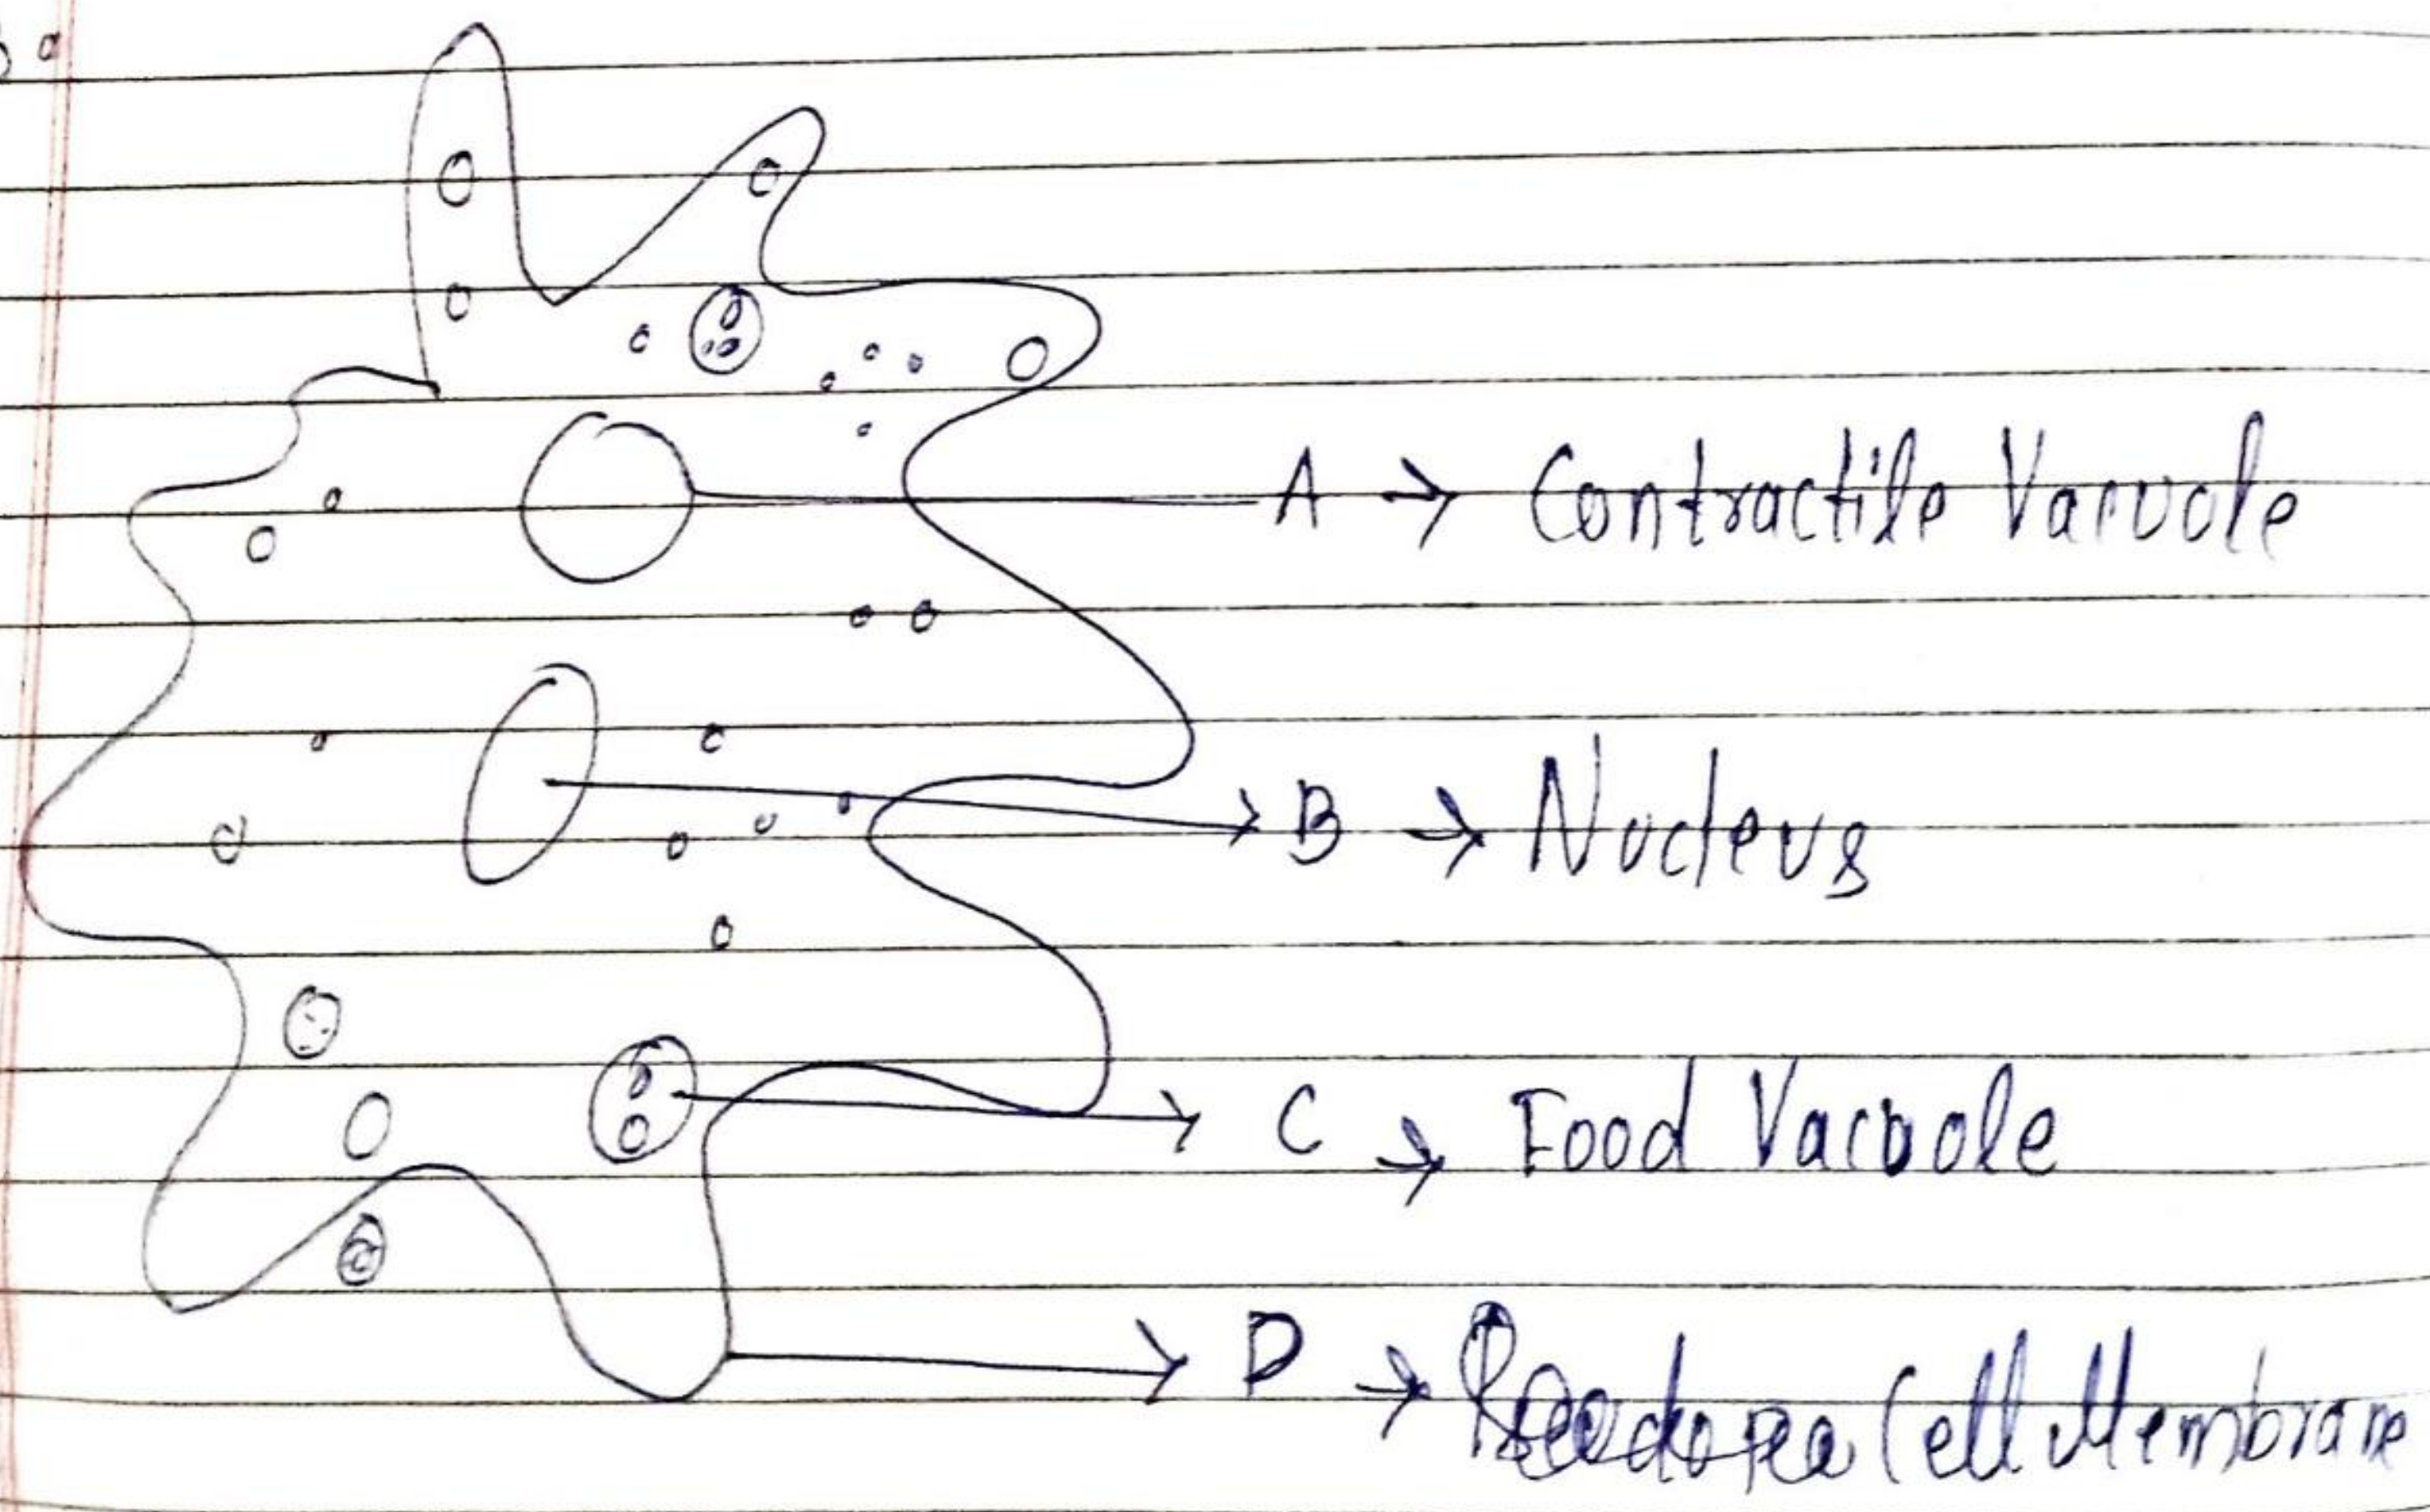 A → Contractile Vacuole
B → Nucleus
C → Food Vacuole
D → Cell Membrane